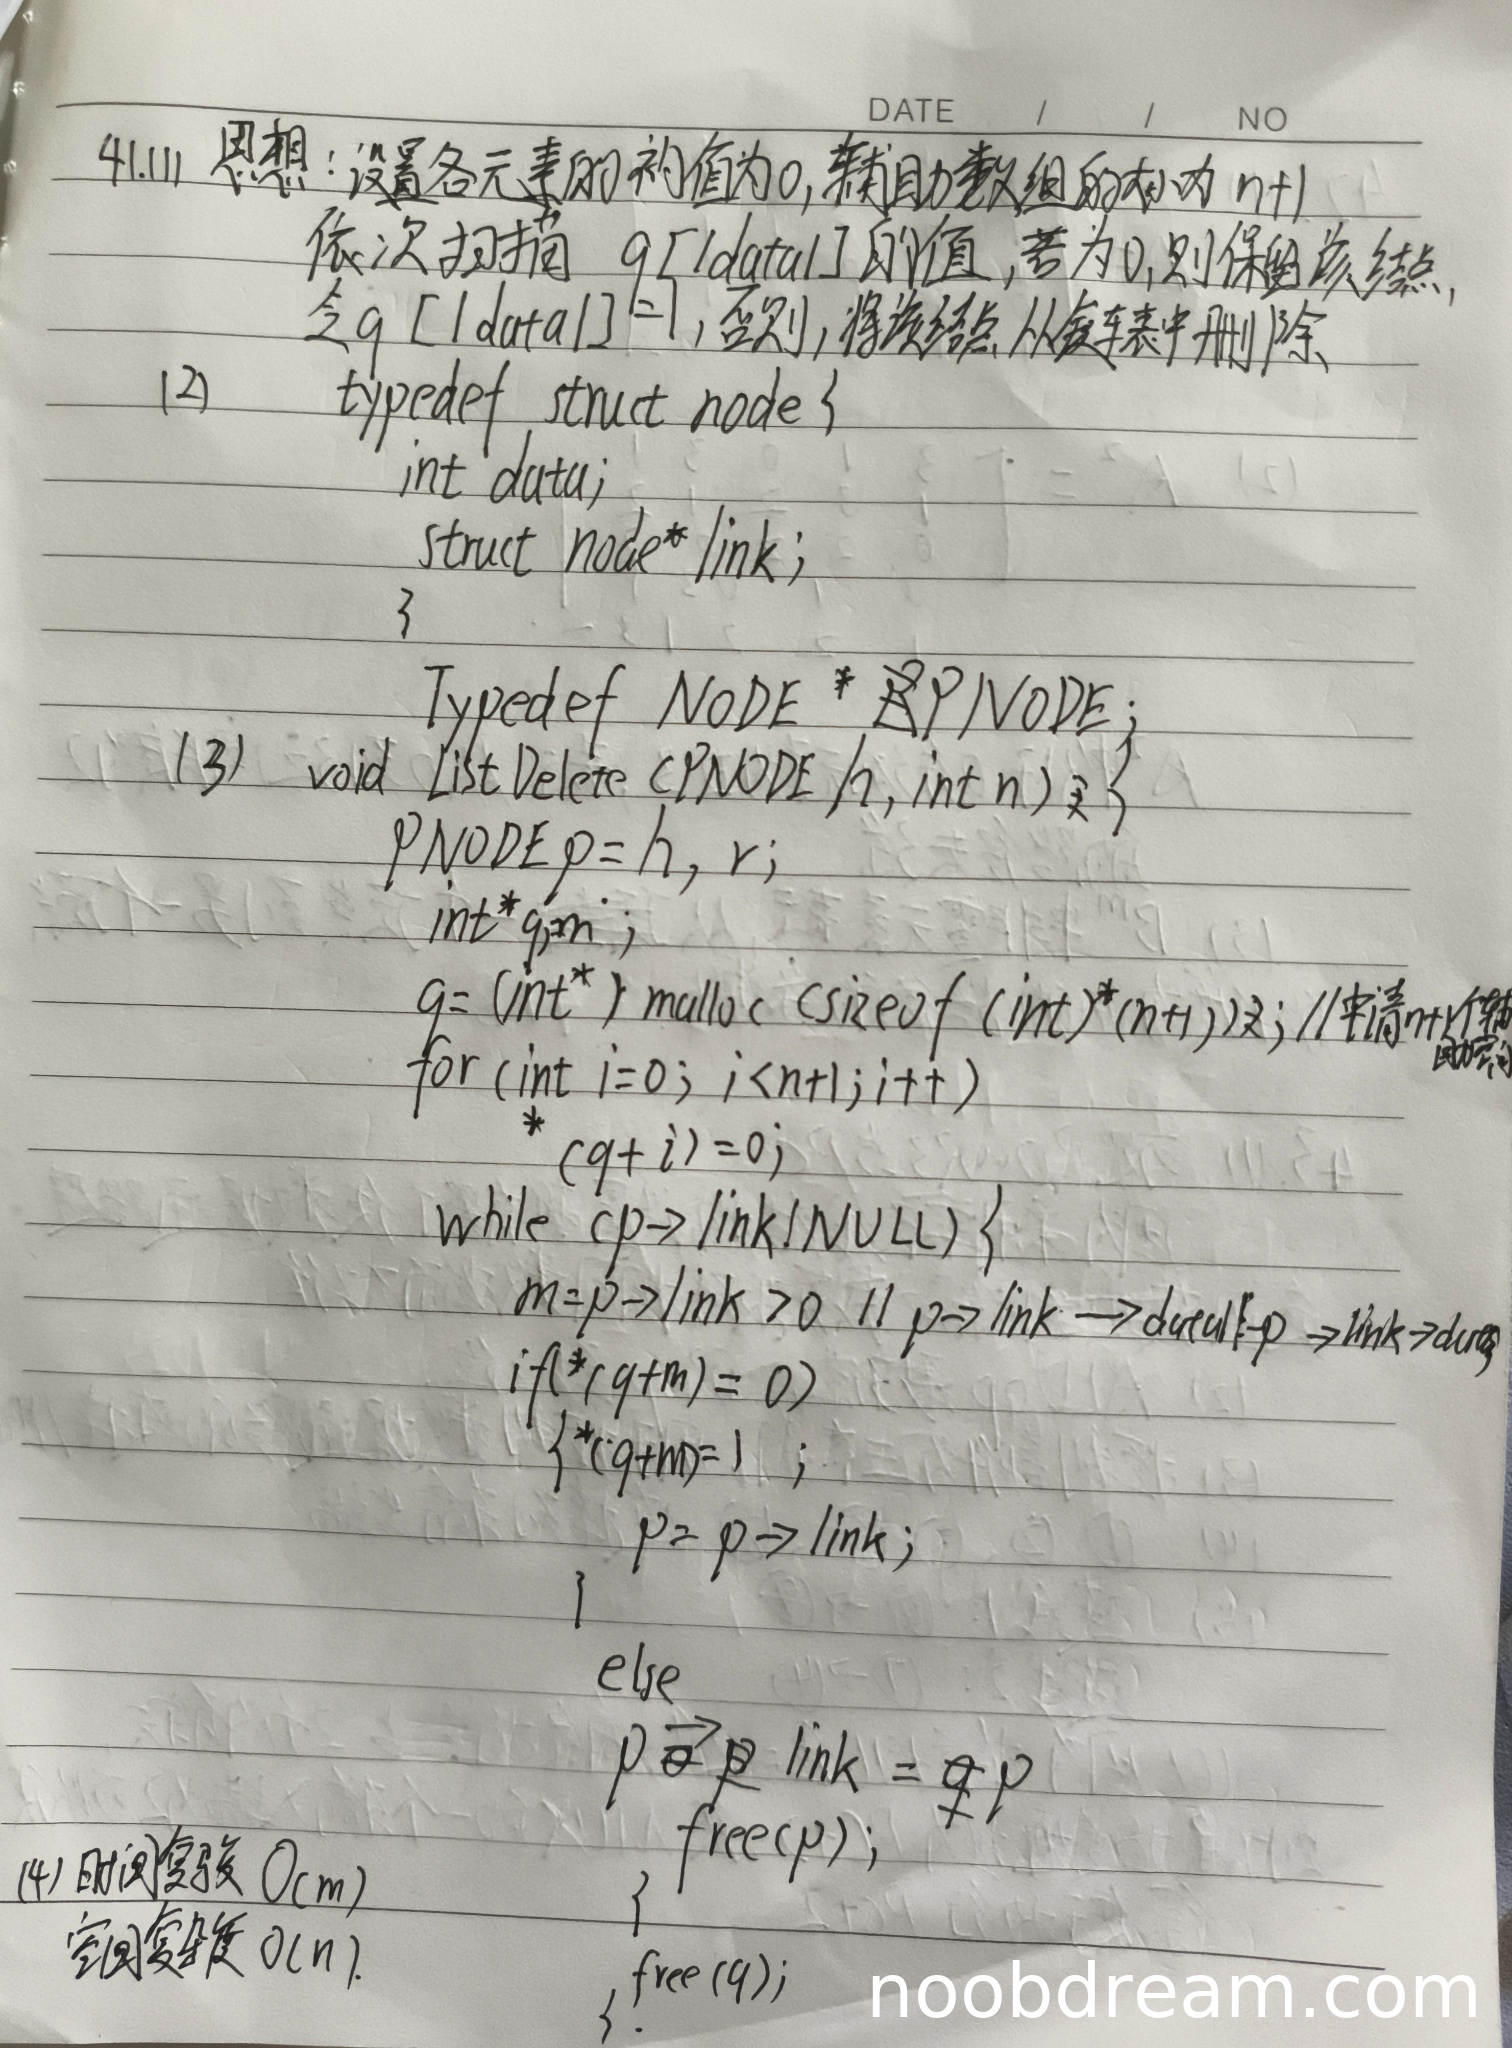 DATE / / NO
41.(1) 思想:设置各元素的初值为0,辅助数组的大小为 n+1
依次扫描 q[|data|]的值,若为0,则保留该结点,
令q[|data|]=1,否则,将该结点从链表中删除
(2) typedef struct node {
int data;
struct node* link;
}
Typedef NODE * PNODE;
(3) void ListDelete (PNODE h, int n) {
PNODE p=h, r;
int *q,m ;
q= (int*) malloc (sizeof (int)*(n+1)); //申请n+1个辅
助空间
for (int i=0; i<n+1; i++)
* (q+i)=0;
while (p->link!NULL) {
m=p->link >0 || p->link->data p->link->data
if(*(q+m)= 0)
{*(q+m)=1 ;
p= p->link;
}
else
p -> link = p
free(p);
}
free(q);
}
(4) 时间复杂度 O(m)
空间复杂度 O(n).
noobdream.com